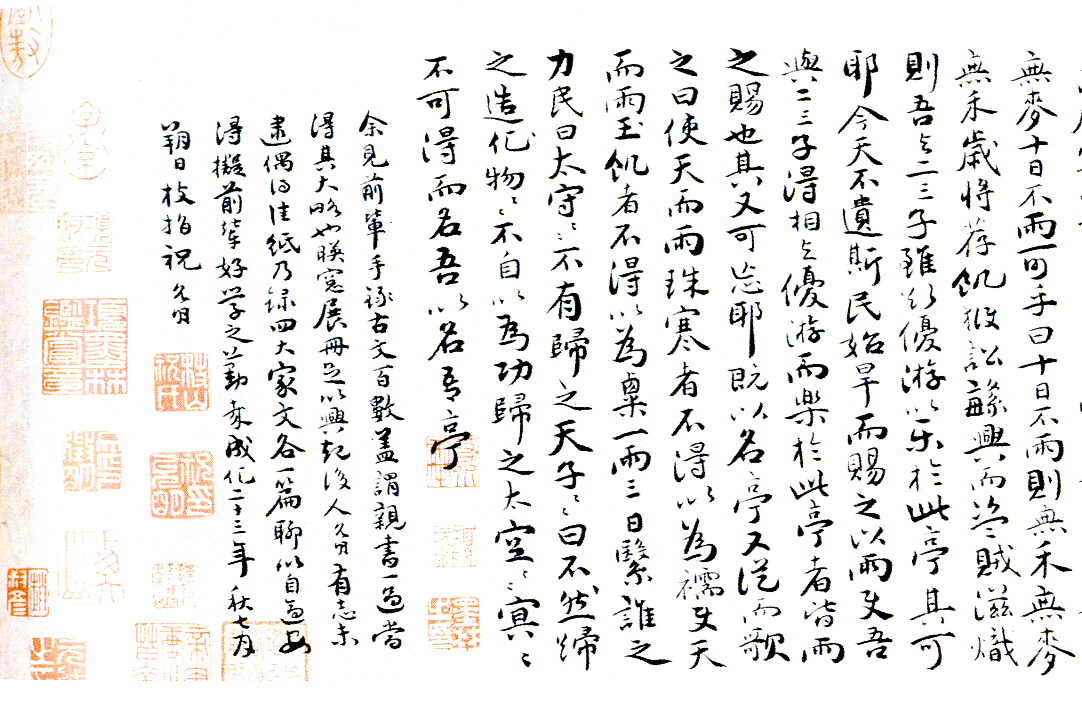 無麥十日不雨可乎曰十日不雨則無禾無麥
無禾歲將荐飢獄訟繇興而盜賊滋熾
則吾与二三子雖欲優游以樂於此亭其可
耶今天不遺斯民始旱而賜之以雨使吾
與二三子得相与優游而樂於此亭者皆雨
之賜也其又可忘耶既以名亭又從而歌
之曰使天而雨珠寒者不得以為襦使天
而雨玉飢者不得以為粟一雨三日繄誰之
力民曰太守〻〻不有歸之天子〻〻曰不然歸
之造化物〻不自以為功歸之太空〻〻冥〻
不可得而名吾以名吾亭
余見前輩手錄古文百數蓋謂親書一過當
得其大略也暇窓展冊足以興起後人允明有志未
逮偶得佳紙乃錄四大家文各一篇聊以自過且
得擬前輩好學之勤成化二十三年秋七月
朔日枝指祝允明
枝山祝氏
祝允明印
項墨林鑑賞章